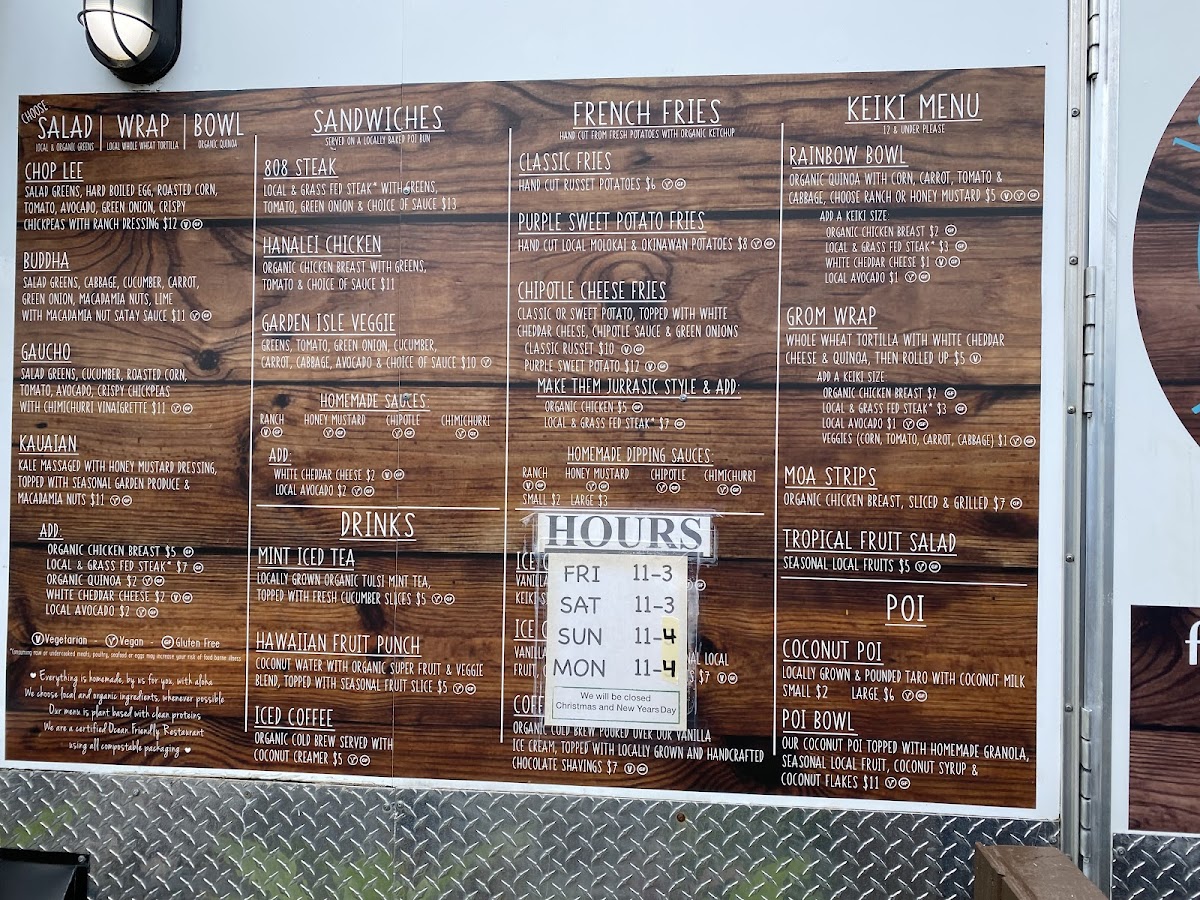 CHOOSE
SALAD | WRAP | BOWL
LOCAL & ORGANIC GREENS LOCAL WHOLE WHEAT TORTILLA ORGANIC QUINOA
CHOP LEE
SALAD GREENS, HARD BOILED EGG, ROASTED CORN,
TOMATO, AVOCADO, GREEN ONION, CRISPY
CHICKPEAS WITH RANCH DRESSING $12 V GF
BUDDHA
SALAD GREENS, CABBAGE, CUCUMBER, CARROT,
GREEN ONION, MACADAMIA NUTS, LIME
WITH MACADAMIA NUT SATAY SAUCE $11 Y GF
GAUCHO
SALAD GREENS, CUCUMBER, ROASTED CORN,
TOMATO, AVOCADO, CRISPY CHICKPEAS
WITH CHIMICHURRI VINAIGRETTE $11 Y GF
KAUAIAN
KALE MASSAGED WITH HONEY MUSTARD DRESSING,
TOPPED WITH SEASONAL GARDEN PRODUCE &
MACADAMIA NUTS $11 Y GF
ADD:
ORGANIC CHICKEN BREAST $5 GF
LOCAL & GRASS FED STEAK* $7 GF
ORGANIC QUINOA $2 Y GF
WHITE CHEDDAR CHEESE $2 V GF
LOCAL AVOCADO $2 Y GF
V Vegetarian - Y Vegan - GF Gluten Free
*Consuming raw or undercooked meats, poultry, seafood or eggs may increase your risk of food borne illness
♥ Everything is homemade, by us for you, with aloha
We choose local and organic ingredients, whenever possible
Our menu is plant based with clean proteins
We are a certified Ocean Friendly Restaurant
using all compostable packaging ♥
SANDWICHES
SERVED ON A LOCALLY BAKED POI BUN
808 STEAK
LOCAL & GRASS FED STEAK* WITH GREENS,
TOMATO, GREEN ONION & CHOICE OF SAUCE $13
HANALEI CHICKEN
ORGANIC CHICKEN BREAST WITH GREENS,
TOMATO & CHOICE OF SAUCE $11
GARDEN ISLE VEGGIE
GREENS, TOMATO, GREEN ONION, CUCUMBER,
CARROT, CABBAGE, AVOCADO & CHOICE OF SAUCE $10 Y
HOMEMADE SAUCES:
RANCH HONEY MUSTARD CHIPOTLE CHIMICHURRI
V GF Y GF Y GF Y GF
ADD:
WHITE CHEDDAR CHEESE $2 V GF
LOCAL AVOCADO $2 Y GF
DRINKS
MINT ICED TEA
LOCALLY GROWN ORGANIC TULSI MINT TEA,
TOPPED WITH FRESH CUCUMBER SLICES $5 Y GF
HAWAIIAN FRUIT PUNCH
COCONUT WATER WITH ORGANIC SUPER FRUIT & VEGGIE
BLEND, TOPPED WITH SEASONAL FRUIT SLICE $5 Y GF
ICED COFFEE
ORGANIC COLD BREW SERVED WITH
COCONUT CREAMER $5 Y GF
FRENCH FRIES
HAND CUT FROM FRESH POTATOES WITH ORGANIC KETCHUP
CLASSIC FRIES
HAND CUT RUSSET POTATOES $6 Y GF
PURPLE SWEET POTATO FRIES
HAND CUT LOCAL MOLOKAI & OKINAWAN POTATOES $8 Y GF
CHIPOTLE CHEESE FRIES
CLASSIC OR SWEET POTATO, TOPPED WITH WHITE
CHEDDAR CHEESE, CHIPOTLE SAUCE & GREEN ONIONS
CLASSIC RUSSET $10 V GF
PURPLE SWEET POTATO $12 V GF
MAKE THEM JURRASIC STYLE & ADD:
ORGANIC CHICKEN $5 GF
LOCAL & GRASS FED STEAK* $7 GF
HOMEMADE DIPPING SAUCES:
RANCH HONEY MUSTARD CHIPOTLE CHIMICHURRI
V GF Y GF Y GF Y GF
SMALL $2 LARGE $3
HOURS
FRI 11-3
SAT 11-3
SUN 11-4
MON 11-4
We will be closed
Christmas and New Years Day
ICE
VANILLA
KEIKI
ICE
LOCAL
FRUIT, $7 V GF
ORGANIC COLD BREW POURED OVER OUR VANILLA
ICE CREAM, TOPPED WITH LOCALLY GROWN AND HANDCRAFTED
CHOCOLATE SHAVINGS $7 V GF
KEIKI MENU
12 & UNDER PLEASE
RAINBOW BOWL
ORGANIC QUINOA WITH CORN, CARROT, TOMATO &
CABBAGE, CHOOSE RANCH OR HONEY MUSTARD $5 V Y GF
ADD A KEIKI SIZE:
ORGANIC CHICKEN BREAST $2 GF
LOCAL & GRASS FED STEAK* $3 GF
WHITE CHEDDAR CHEESE $1 V GF
LOCAL AVOCADO $1 Y GF
GROM WRAP
WHOLE WHEAT TORTILLA WITH WHITE CHEDDAR
CHEESE & QUINOA, THEN ROLLED UP $5 V
ADD A KEIKI SIZE:
ORGANIC CHICKEN BREAST $2 GF
LOCAL & GRASS FED STEAK* $3 GF
LOCAL AVOCADO $1 Y GF
VEGGIES (CORN, TOMATO, CARROT, CABBAGE) $1 Y GF
MOA STRIPS
ORGANIC CHICKEN BREAST, SLICED & GRILLED $7 GF
TROPICAL FRUIT SALAD
SEASONAL LOCAL FRUITS $5 Y GF
POI
COCONUT POI
LOCALLY GROWN & POUNDED TARO WITH COCONUT MILK
SMALL $2 LARGE $6 Y GF
POI BOWL
OUR COCONUT POI TOPPED WITH HOMEMADE GRANOLA,
SEASONAL LOCAL FRUIT, COCONUT SYRUP &
COCONUT FLAKES $11 Y GF
f